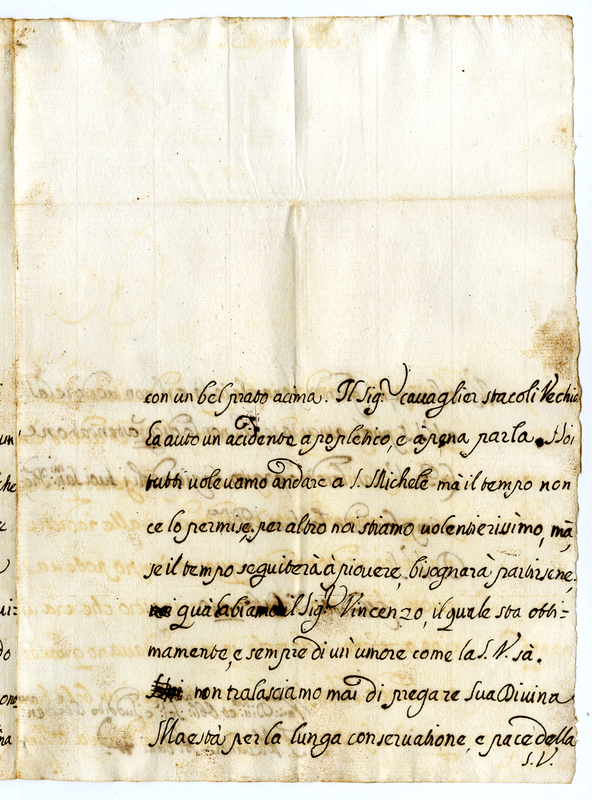 con un bel prato acima. Il Sig.r Cavaglier stacoli Vechio
ha auto un acidente apopletico, e à pena parla. Noi
tutti volevamo andare a S. Michele mà il tempo non
ce lo permise, per altro noi stiamo volentierissimo, mà
se il tempo seguiterà à piovere, bisognarà partirsene,
quà abiamo il Sig.r Vincenzo, il quale sta otti=
mamente, e sempre di un'umore come la S. V. sà.
non tralasciamo mai di pregare Sua Divina
Maestà per la lunga conservatione, e pace della
S.V.